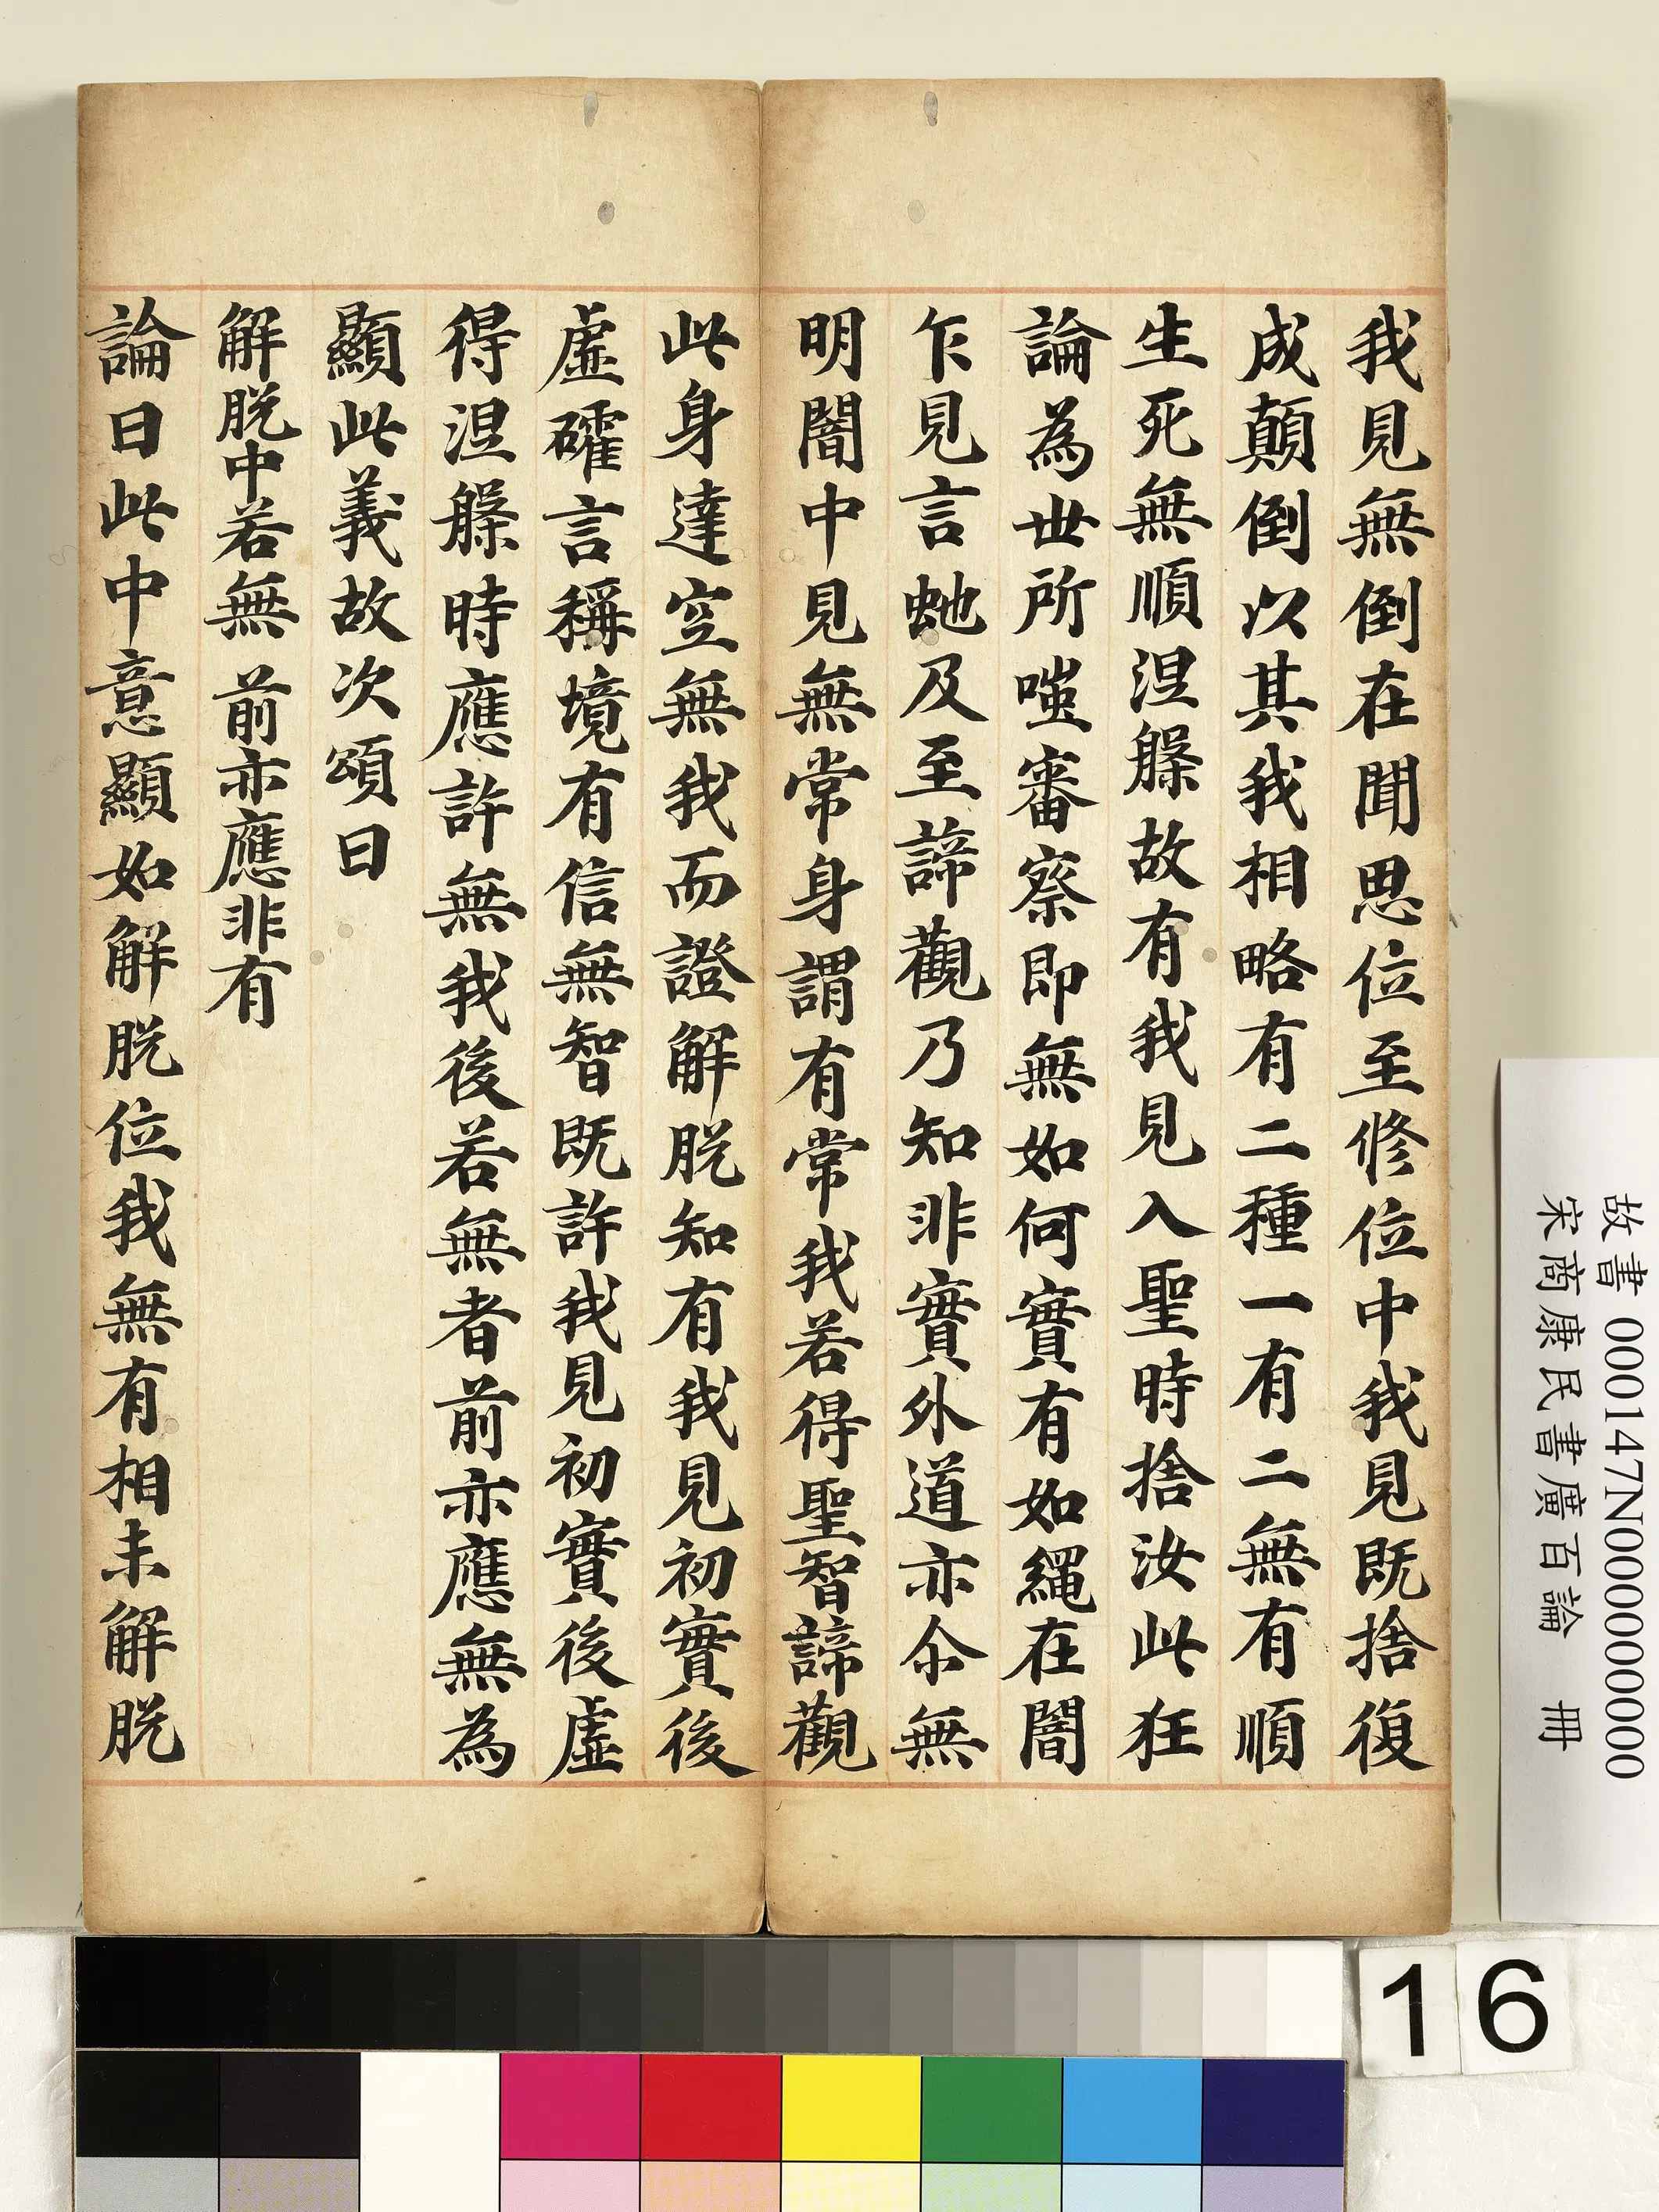 我見無倒在聞思位至修位中我見既捨復
成顛倒以其我相略有二種一有二無有順
生死無順涅槃故有我見入聖時捨汝此狂
論為世所嗤審察即無如何實有如繩在闇
乍見言虵及至諦觀乃知非實外道亦尒無
明闇中見無常身謂有常我若得聖智諦觀
此身達空無我而證解脫知有我見初實後
虛礭言稱境有信無智既許我見初實後虛
得涅槃時應許無我後若無者前亦應無為
顯此義故次頌曰
解脫中若無 前亦應非有
論曰此中意顯如解脫位我無有相未解脫
故書 000147N000000000
宋商康民書廣百論 冊
16